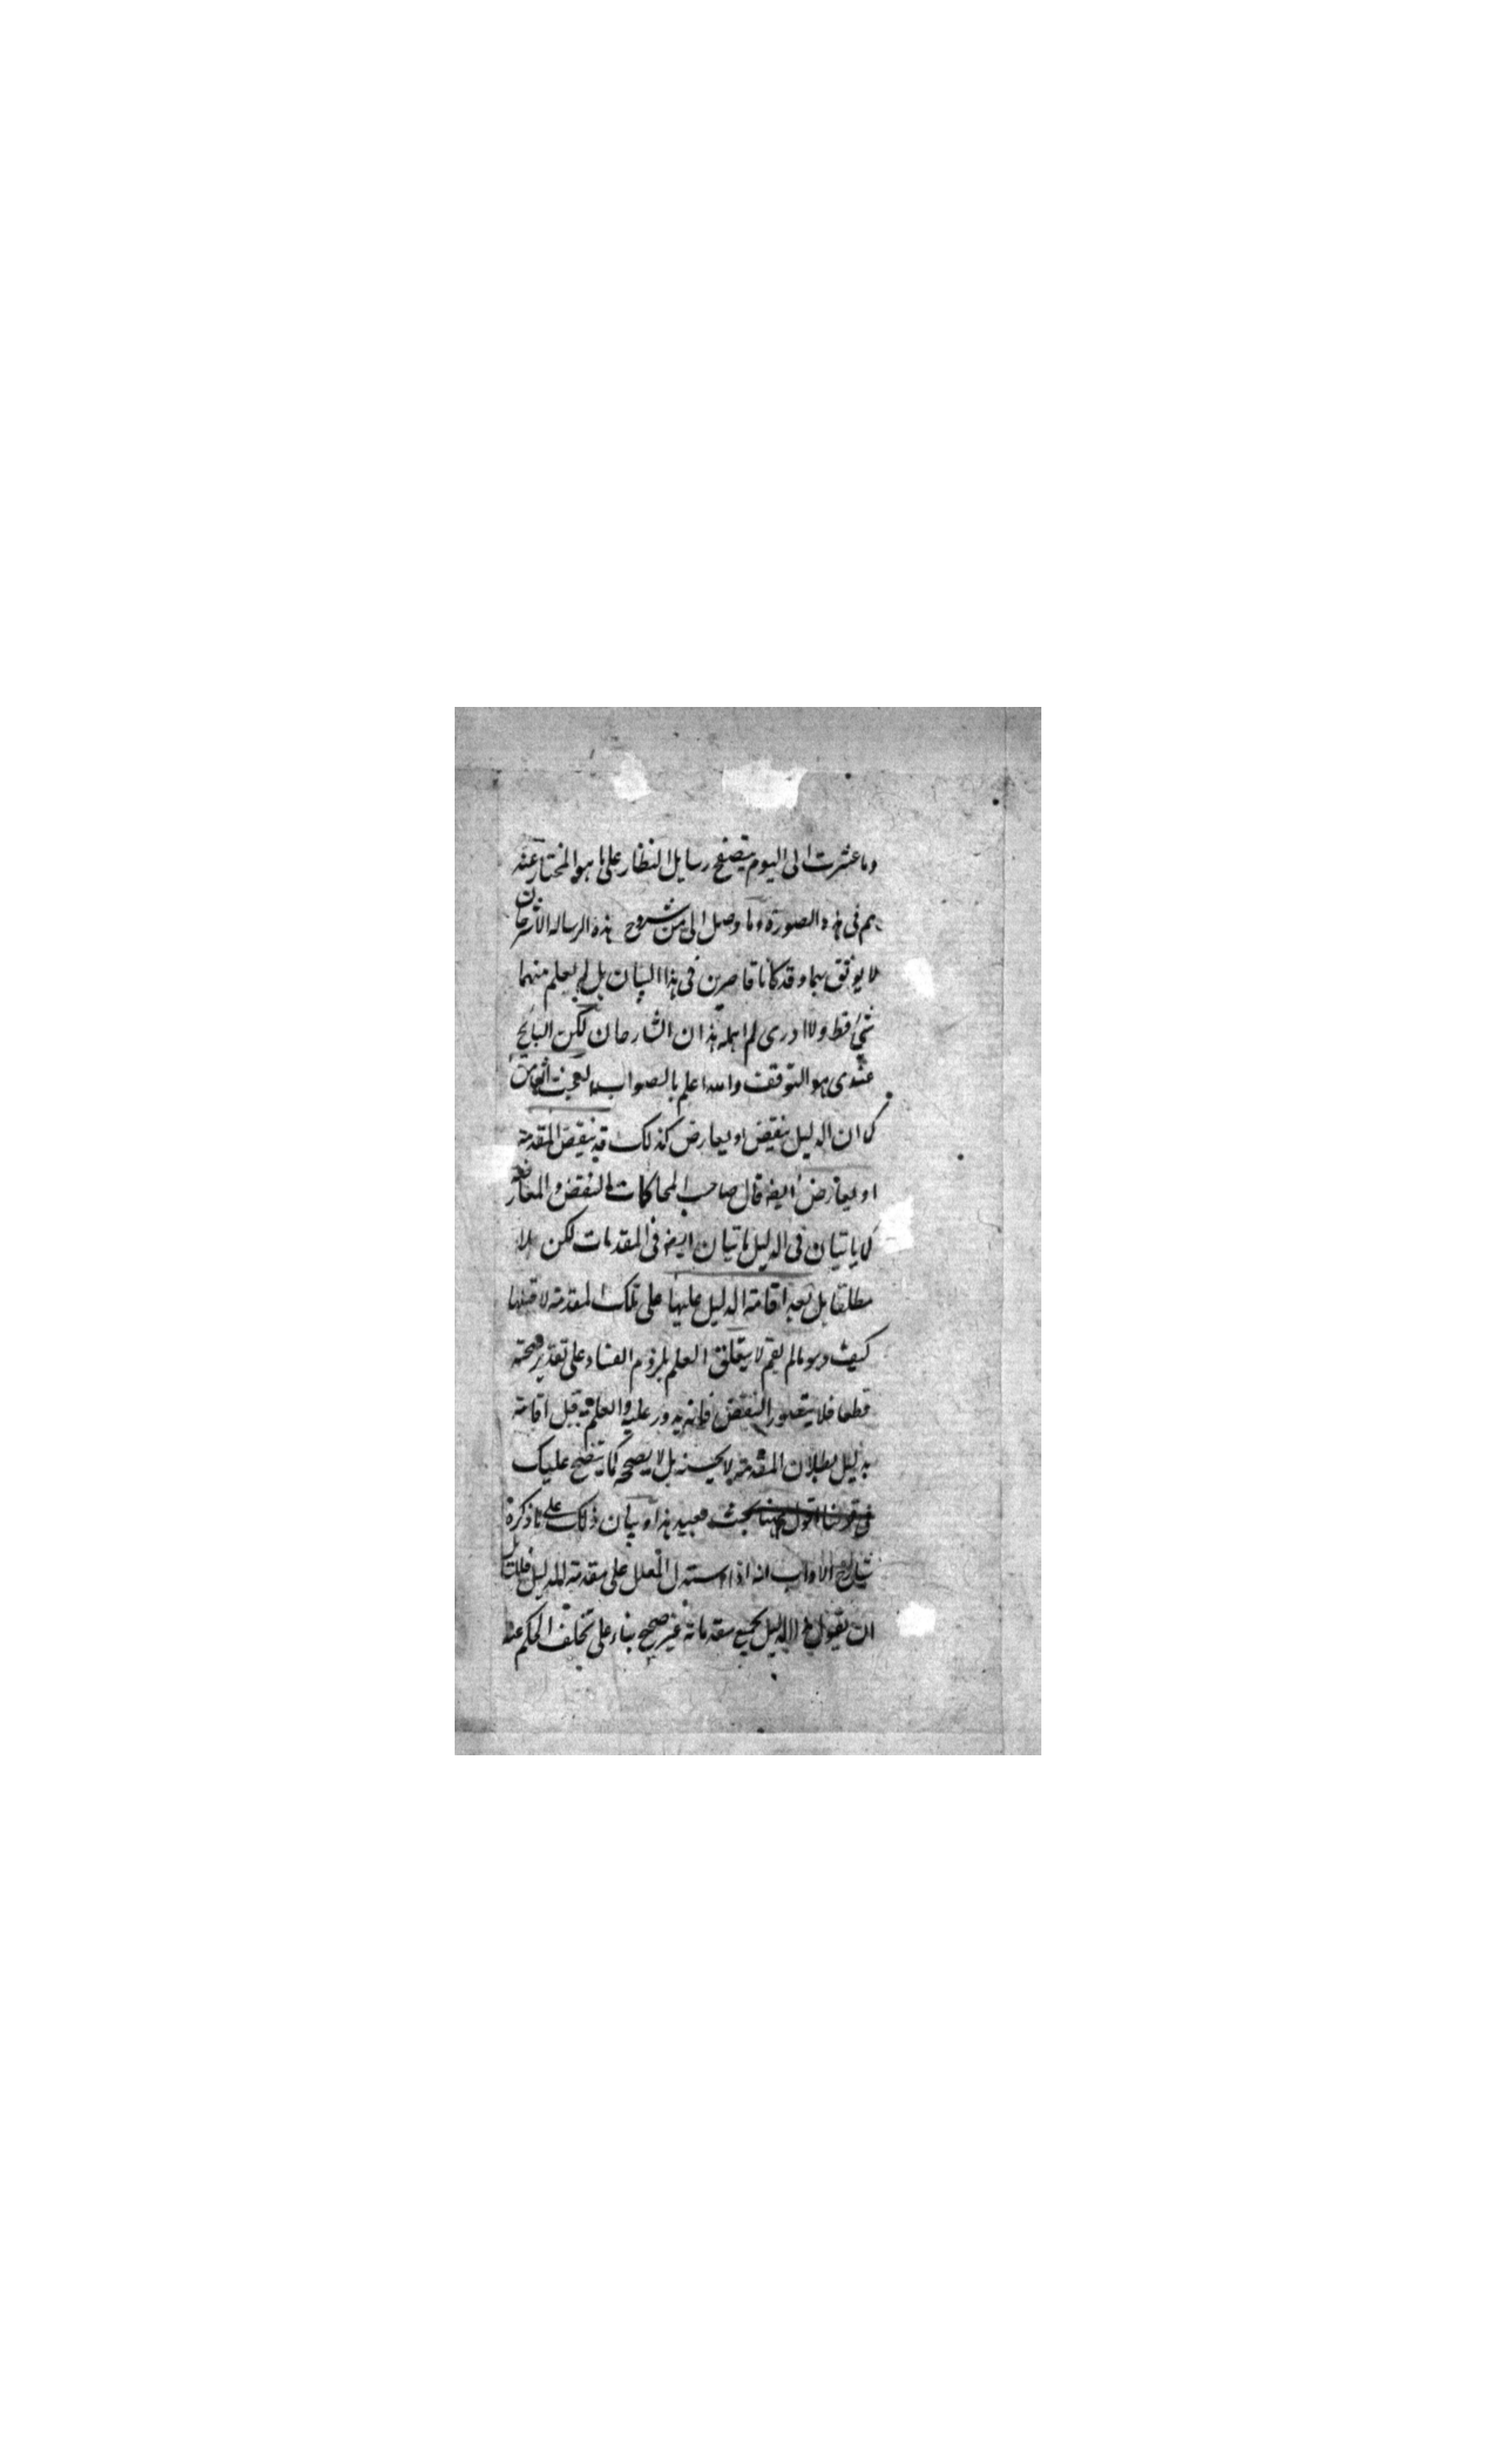 وما عثرت الى اليوم بتصفح رسايل النظار على ما هو المختار عند
هم فى هذه الصورة وما وصل الى من شروح هذه الرساله الا شرحان
لا يوثق بهما وقد كانا قاصرين فى هذا البيان بل لم يعلم منهما
شئ قط ولا ادرى لم اهمله هذان الشارحان لكن
عندى هو التوقف والله اعلم بالصواب البحث
كما ان الدليل ينقض او يعارض كذلك قد ينقض المقدمة
او يعارض ايضا قال صاحب المحاكمات النقض والمعارضة
كما ياتيان فى الدليل ياتيان ايضا فى المقدمات لكن لا
مطلقا بل بعد اقامة الدليل عليها على تلك المقدمة لا قبلها
كيف وهو مالم يقم لا يتعلق العلم بلزوم الفساد على تقدير صحته
قطعا فلا يتصور النقض فانه يدور عليه والعلم قبل اقامة
دليل بطلان المقدمة لا يحسنه بل لا يصح كما يتضح عليك
فى قولنا اقول ههنا بحث بعيد هذا وبيان ذلك على ما ذكره
شارح الاداب انه اذا استدل المعلل على مقدمة الدليل فللسائل
ان يقول هذا الدليل بجميع مقدماته غير صحيح بناء على تخلف الحكم عنه